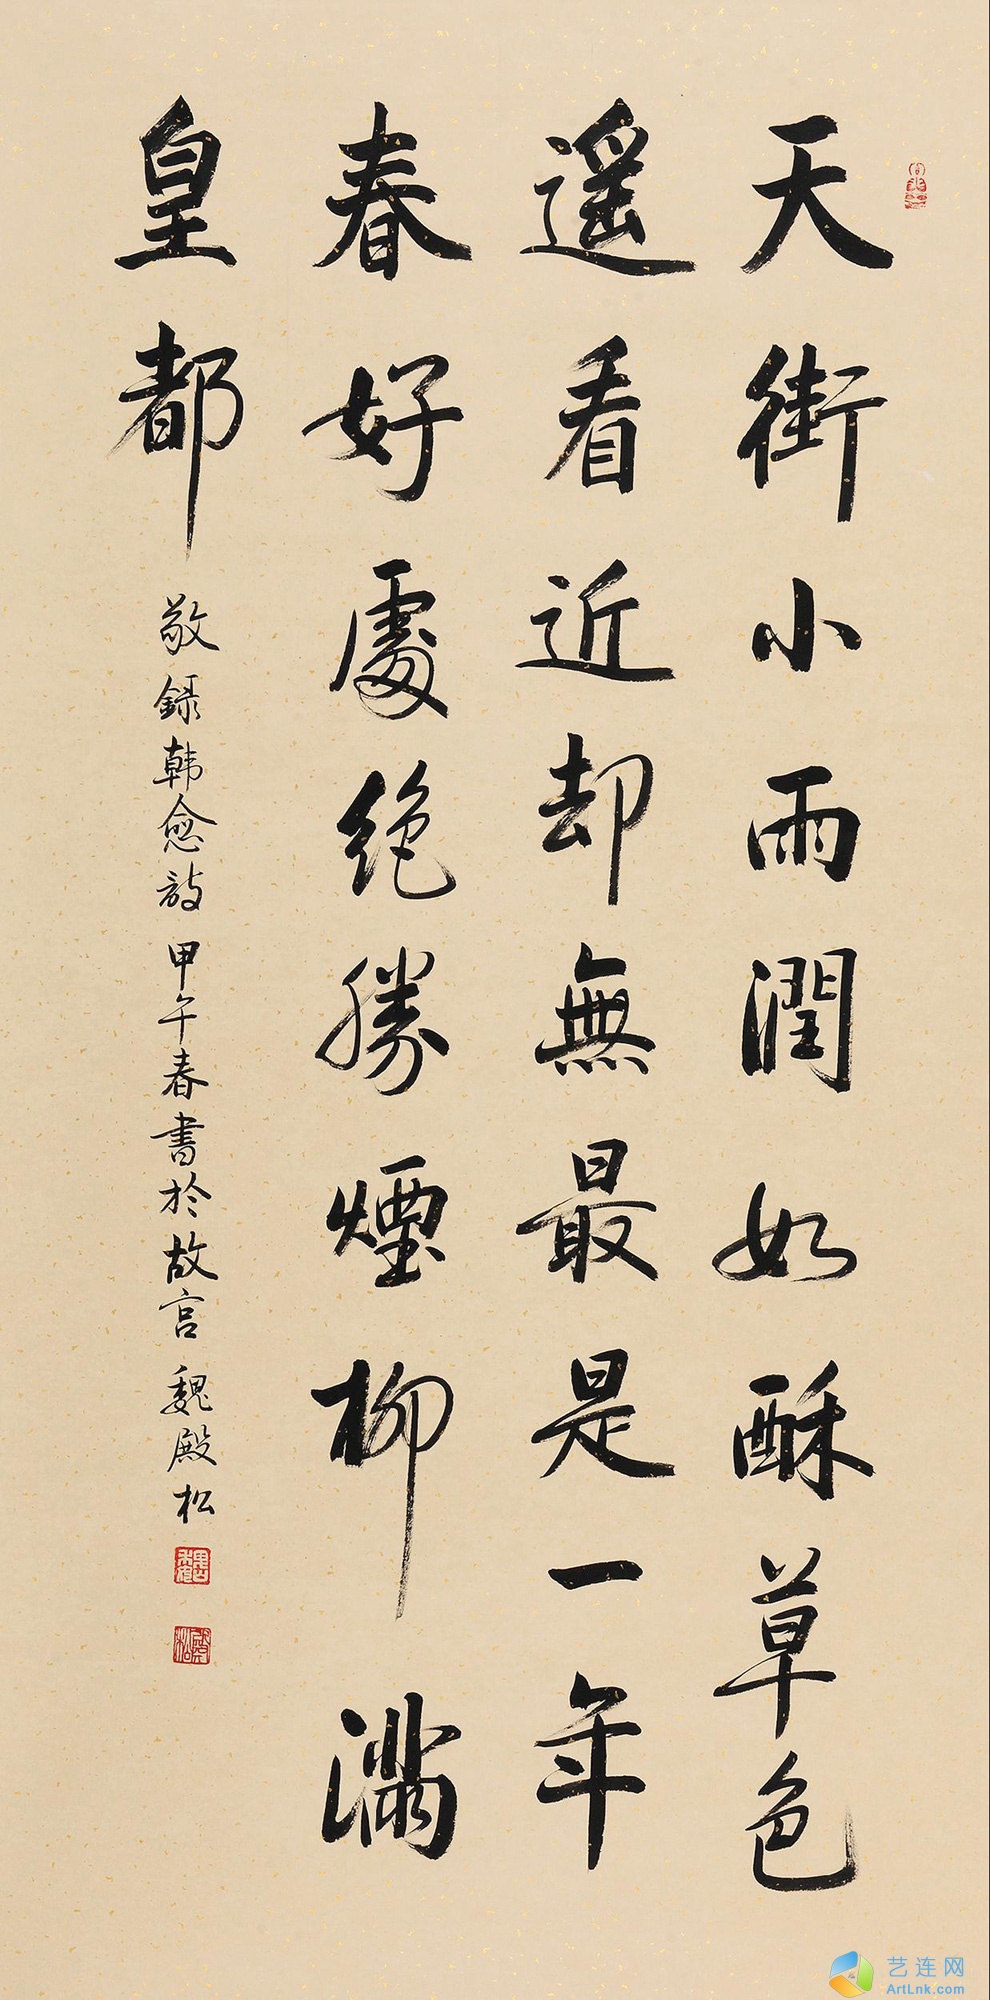 天街小雨潤如酥草色
遥看近却無最是一年
春好處絶勝煙柳滿
皇都
敬録韩愈詩甲午春書於故宫魏殿松
艺连网
ArtLnk.com